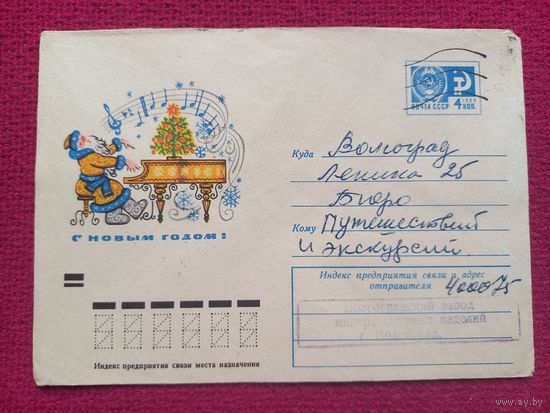 ПОЧТА СССР
1966
4 КОП.
С НОВЫМ ГОДОМ!
Куда Волгоград
Ленина 25
Бюро
Кому Путешествий
и экскурсий
Индекс предприятия связи и адрес
отправителя 400075
Волгоградский завод
изделий
г. Волгоград
Индекс предприятия связи места назначения
www.ay.by